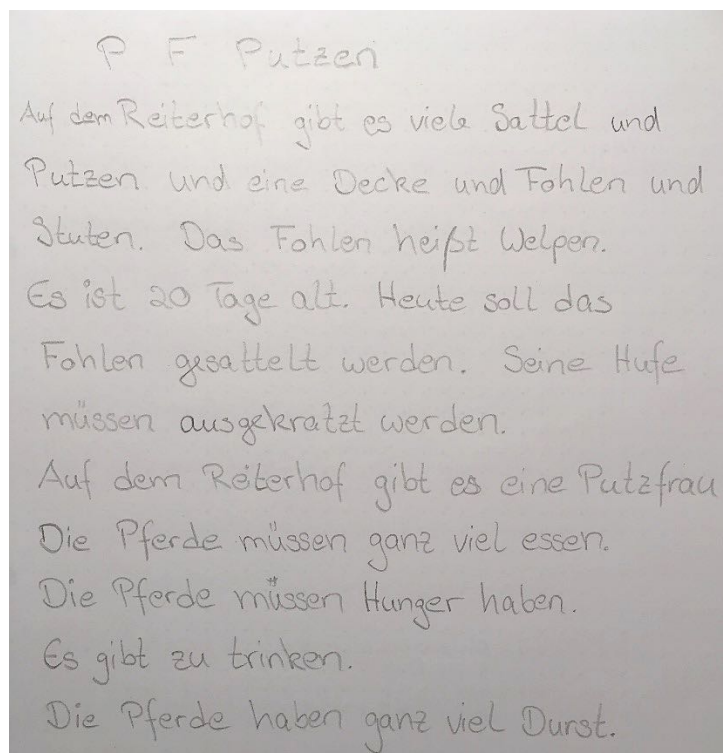 P F Putzen
Auf dem Reiterhof gibt es viele Sattel und
Putzen und eine Decke und Fohlen und
Stuten. Das Fohlen heißt Welpen.
Es ist 20 Tage alt. Heute soll das
Fohlen gesattelt werden. Seine Hufe
müssen ausgekratzt werden.
Auf dem Reiterhof gibt es eine Putzfrau
Die Pferde müssen ganz viel essen.
Die Pferde müssen Hunger haben.
Es gibt zu trinken.
Die Pferde haben ganz viel Durst.